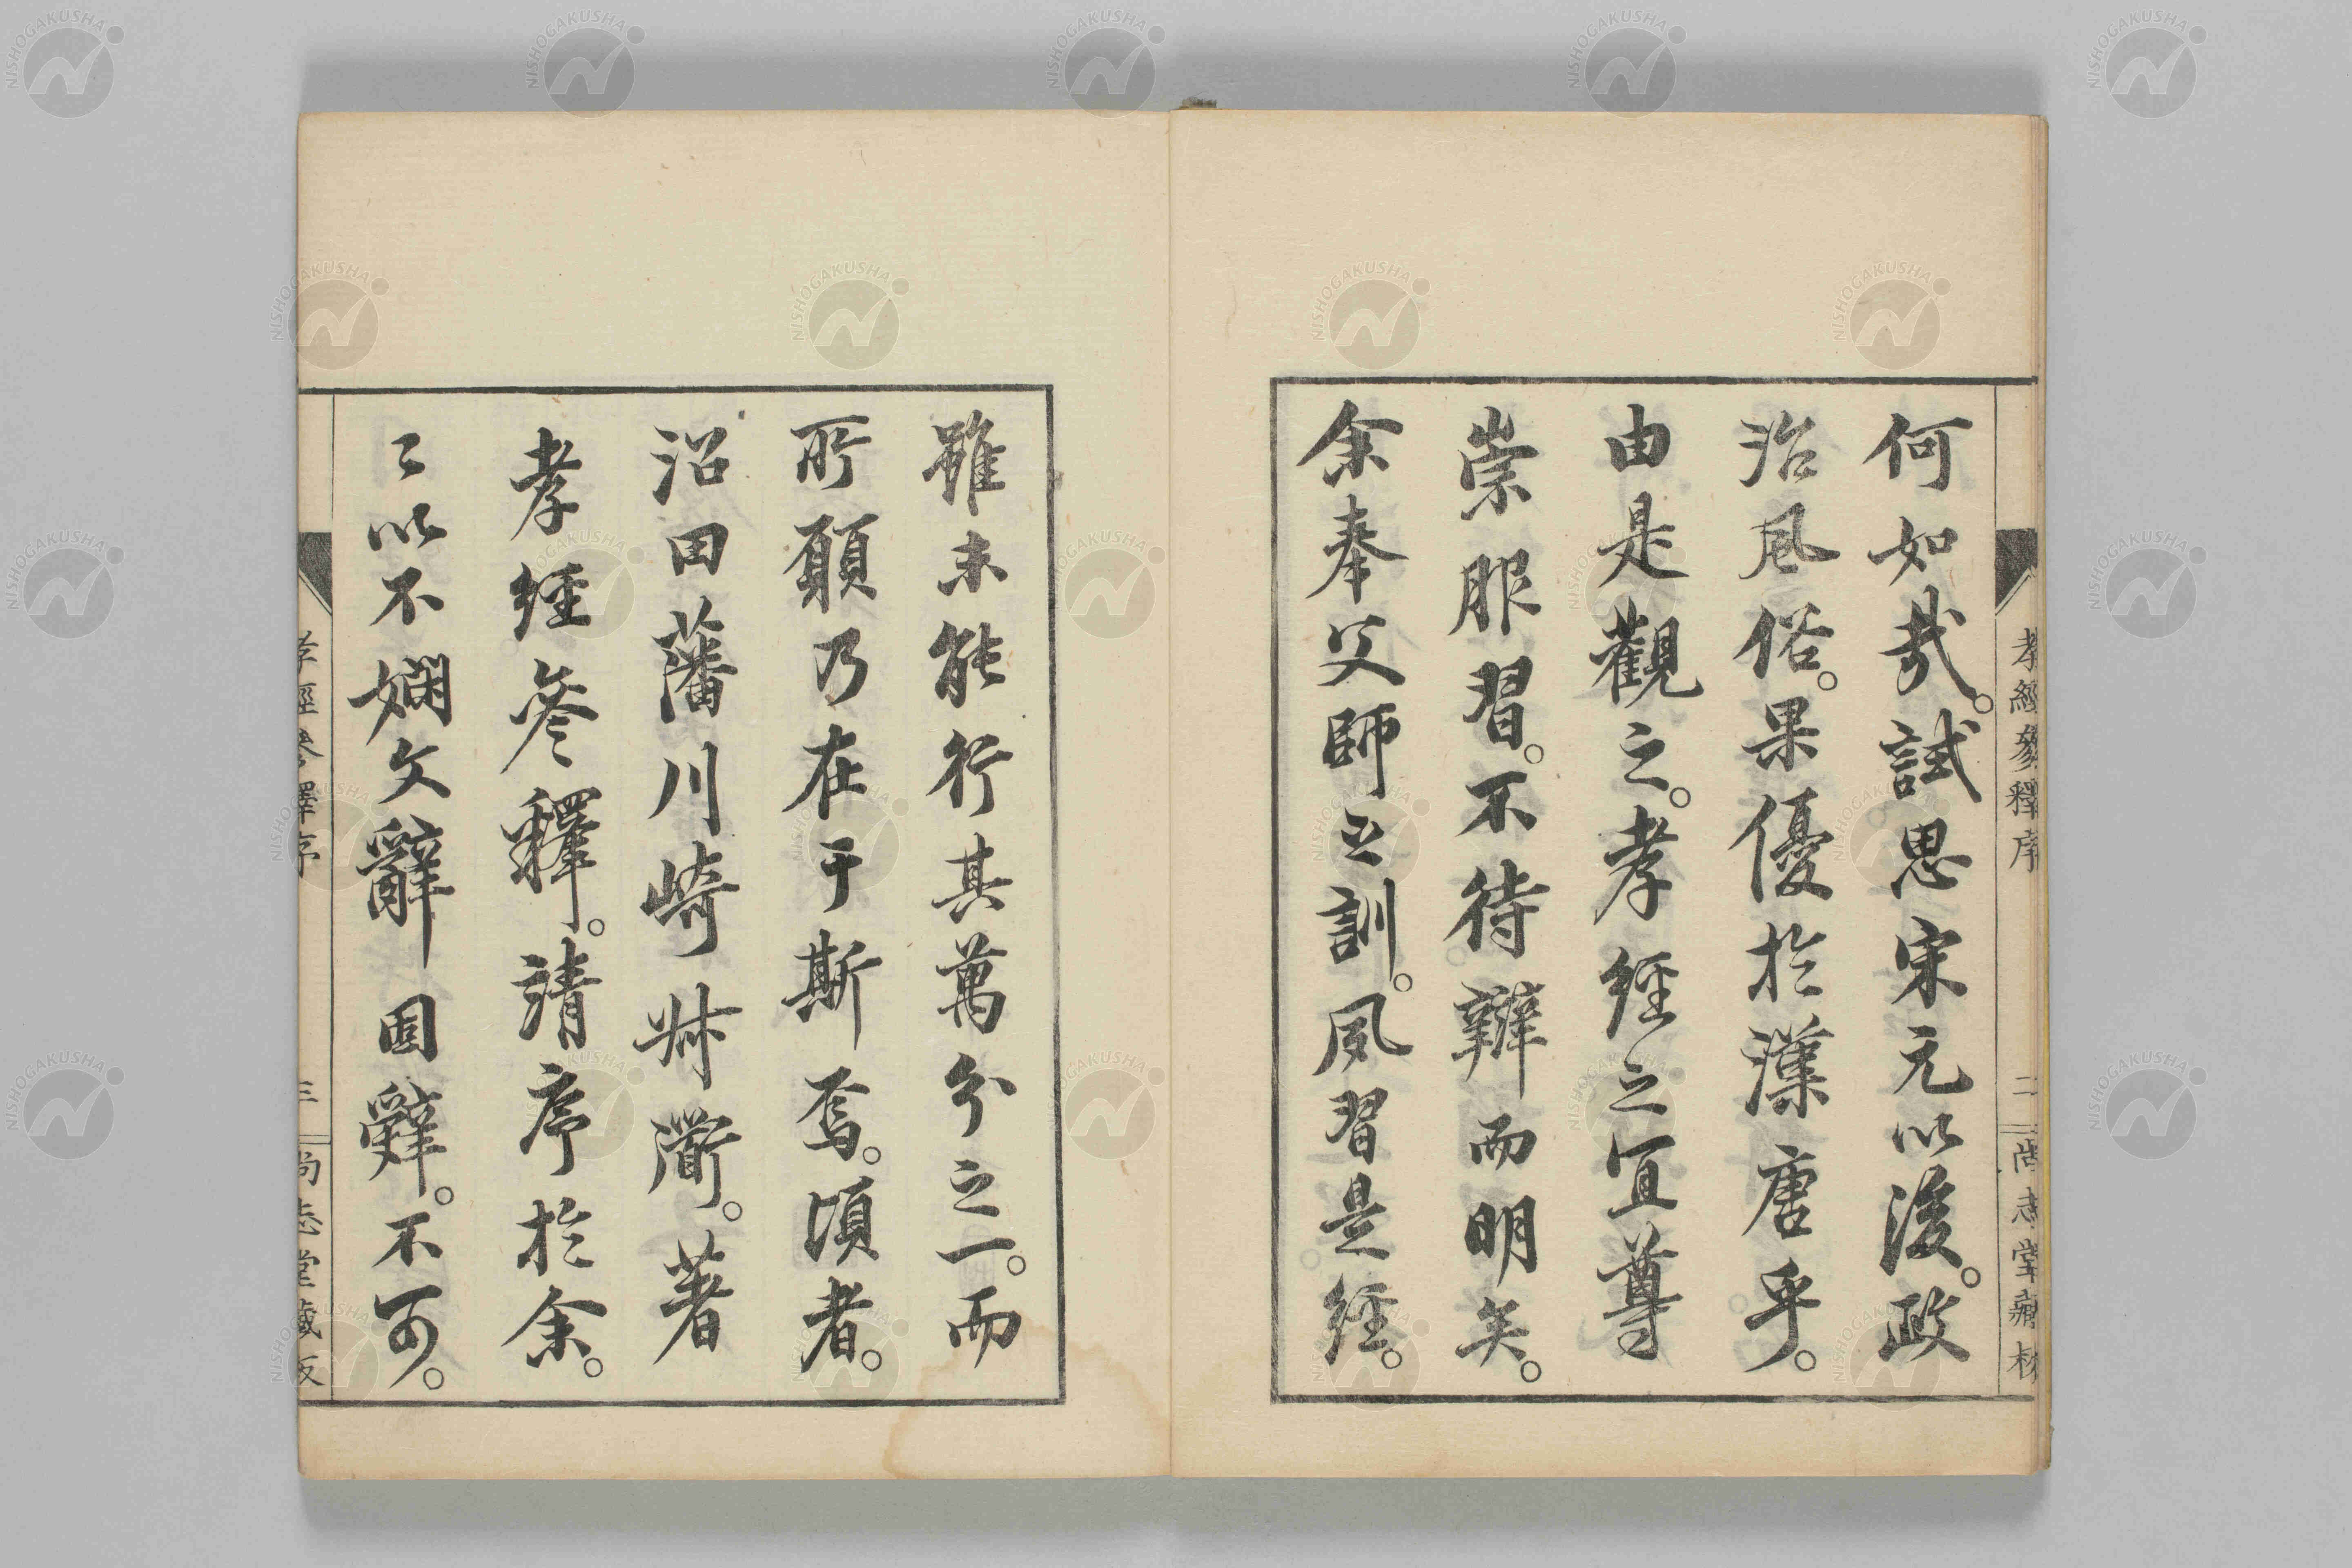 何如哉。試思宋元以後。政
治風俗。果優於漢唐乎。
由是觀之。孝經之宜尊
崇服習。不待辨而明矣。
余奉父師之訓。夙習是經。
孝經參釋序
二
尚志堂藏板
雖未能行其萬分之一。而
所願乃在于斯焉。頃者。
沼田藩川崎叔衜。著
孝經參釋。請序於余。
〻以不嫻文辭固辭。不可。
孝經參釋序
三
尚志堂藏板
NISHOGAKUSHA